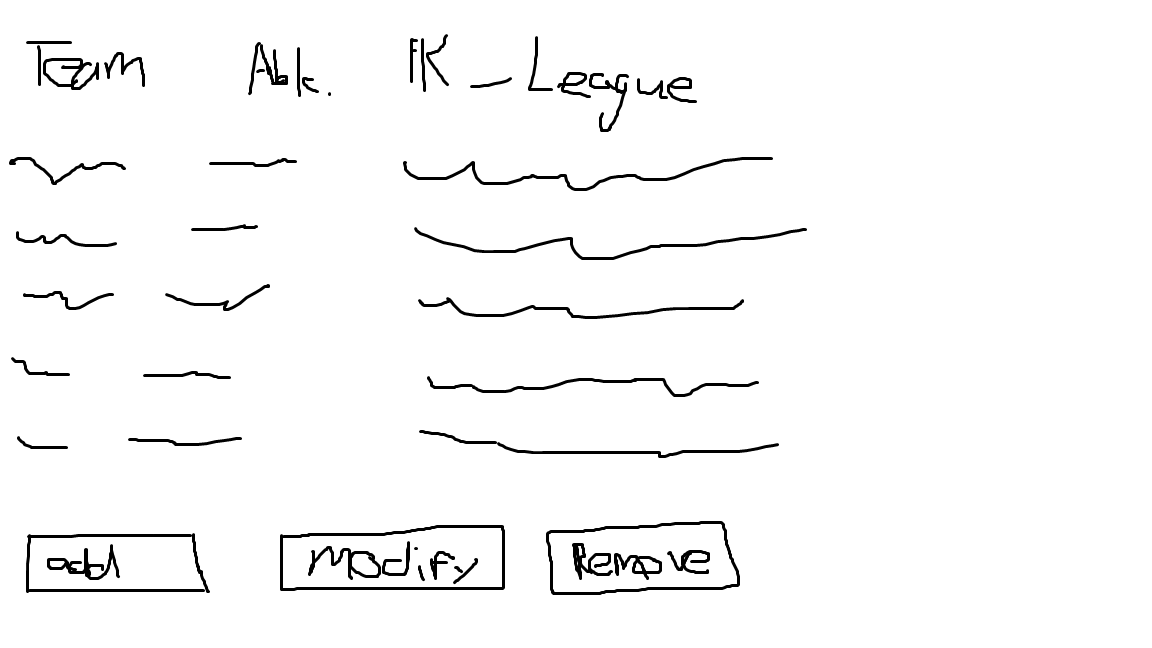 Team Abk. FK_League
add Modify Remove